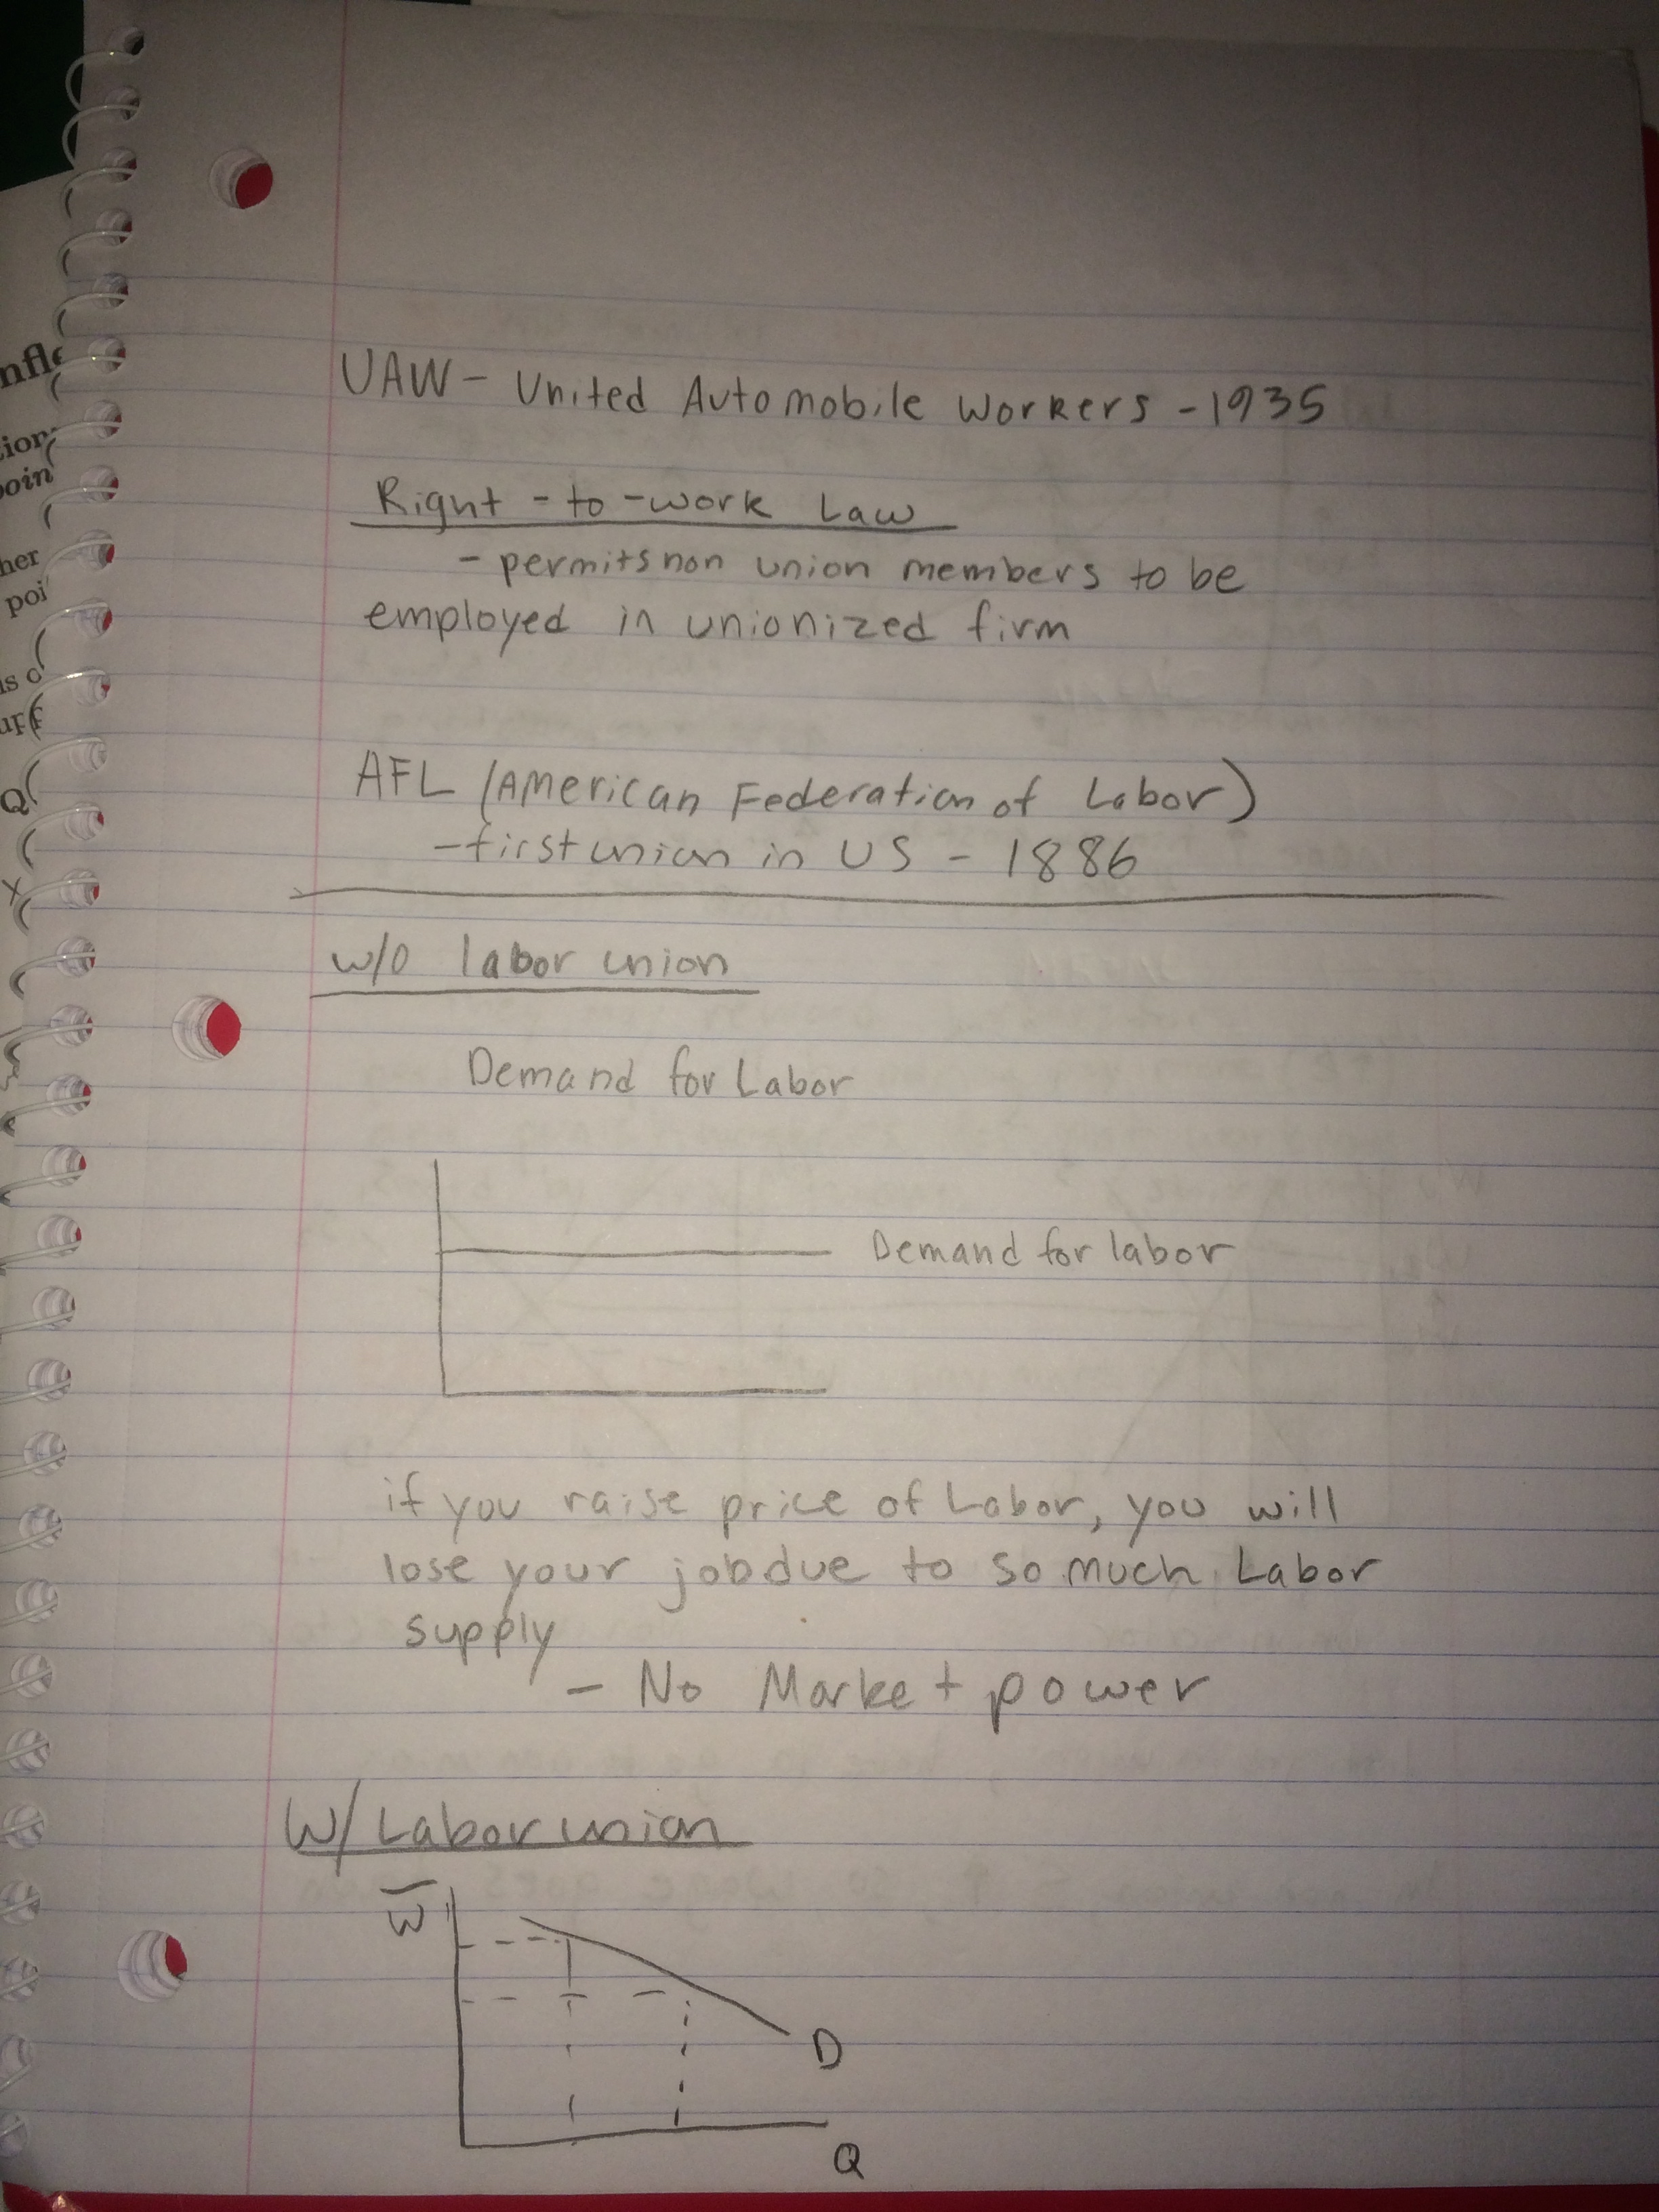 UAW - United Automobile Workers - 1935
Right - to - work Law
- permits non union members to be
employed in unionized firm
AFL (American Federation of Labor)
- first union in US - 1886
w/o labor union
Demand for Labor
Demand for labor
if you raise price of Labor, you will
lose your job due to so much Labor
supply
- No Market power
W/ Labor union
W
D
Q
her
Q